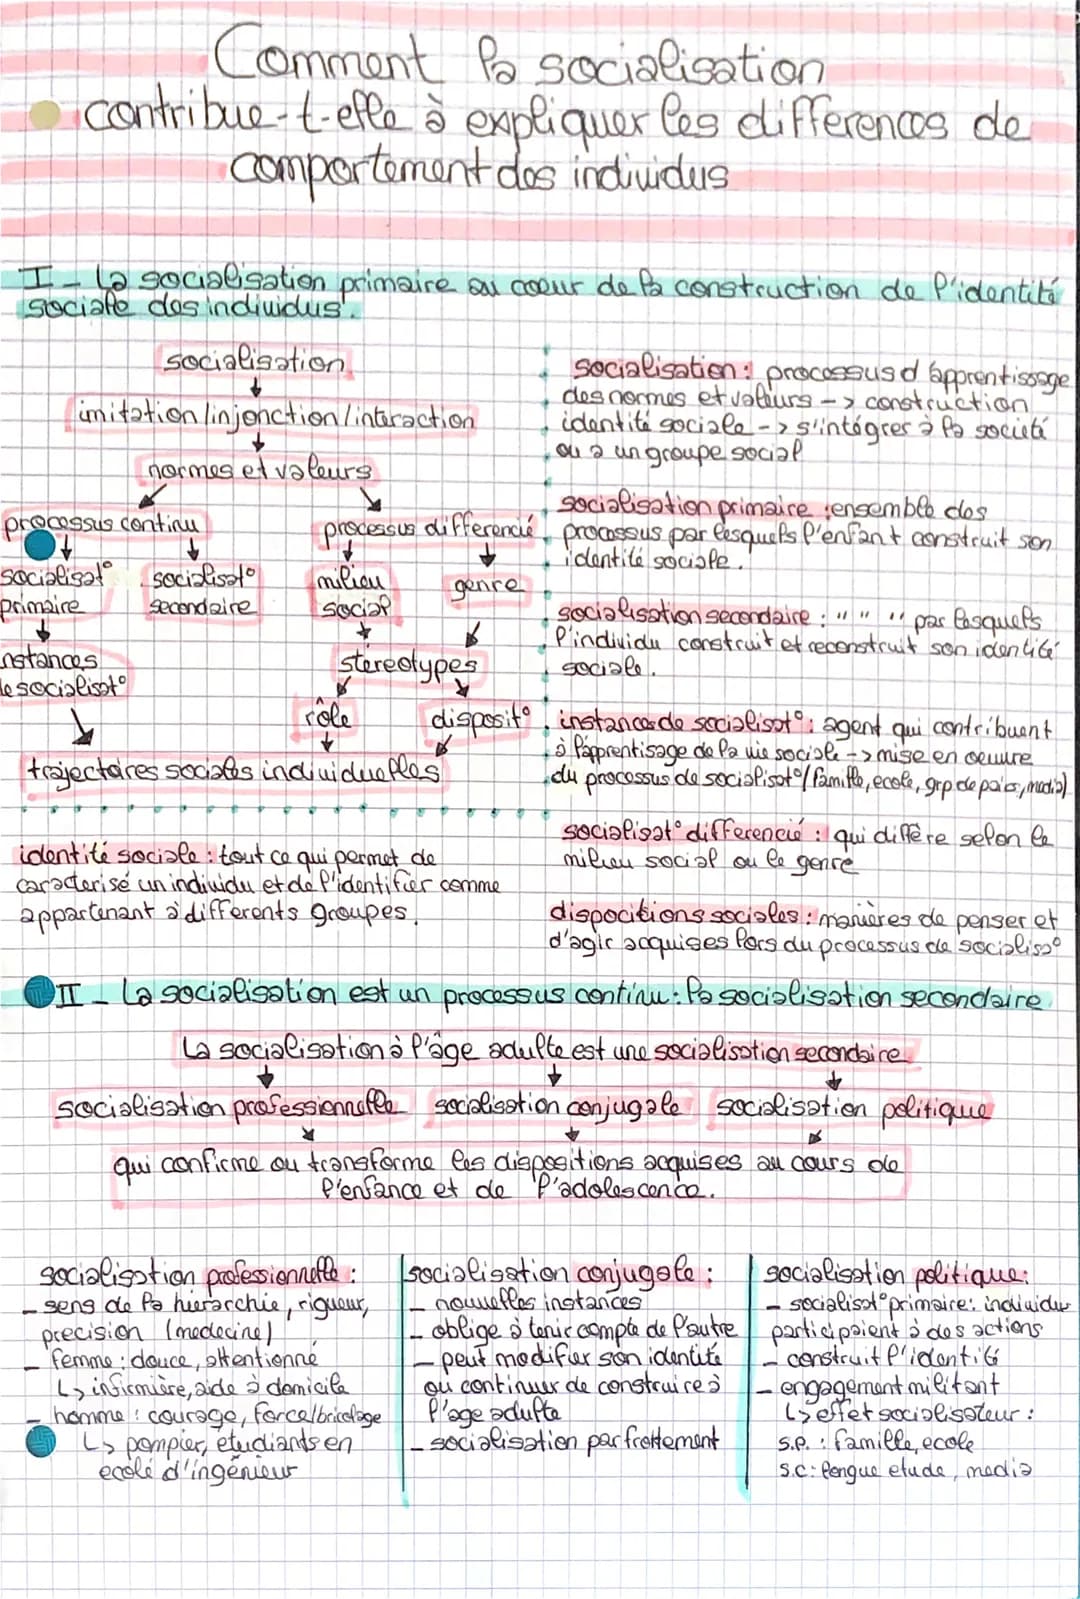 Comment la socialisation
contribue-t-elle à expliquer les differences de
comportement des individus
I - La socialisation primaire au coeur de la construction de l'identité
sociale des individus.
socialisation
imitation/injonction/interaction
normes et valeurs
processus continu
processus differencié
socialisat°
primaire
socialisat°
secondaire
milieu
social
genre
instances
de socialisat°
stéreotypes
rôle
disposit°
trajectoires sociales individuelles
identité sociale : tout ce qui permet de
caracterisé un individu et de l'identifier comme
appartenant à differents groupes.
socialisation : processus d'apprentissage
des normes et valeurs -> construction
identité sociale -> s'intégrer à la societé
ou a un groupe social
socialisation primaire : ensemble des
processus par lesquels l'enfant construit son
identité sociale.
socialisation secondaire : " " " par lesquels
l'individu construit et reconstruit son identité
sociale.
instances de socialisat° : agent qui contribuent
à l'apprentisage de la vie sociale -> mise en oeuvre
du processus de socialisat° (famille, ecole, grp de pairs, media)
socialisat° differencié : qui diffère selon le
milieu social ou le genre
dispocitions sociales : manières de penser et
d'agir acquises lors du processus de socialisa°
II - La socialisation est un processus continu : la socialisation secondaire
La socialisation à l'âge adulte est une socialisation secondaire
socialisation professionnelle socialisation conjugale socialisation politique
qui confirme ou transforme les dispositions acquises au cours de
l'enfance et de l'adolescence.
socialisation professionnelle :
- sens de la hierarchie, rigueur,
precision (medecine)
- femme : douce, attentionné
↳ infirmière, aide à domicile
- homme : courage, force/bricolage
↳ pompier, étudiants en
école d'ingénieur
socialisation conjugale :
- nouvelles instances
- oblige à tenir compte de l'autre
- peut modifier son identité
ou continuer de construire à
l'age adulte
- socialisation par frottement
socialisation politique :
- socialisat° primaire : individus
participaient à des actions
- construit l'identité
- engagement militant
↳ effet socialisateur :
s.p. : famille, ecole
s.c : longue etude, media